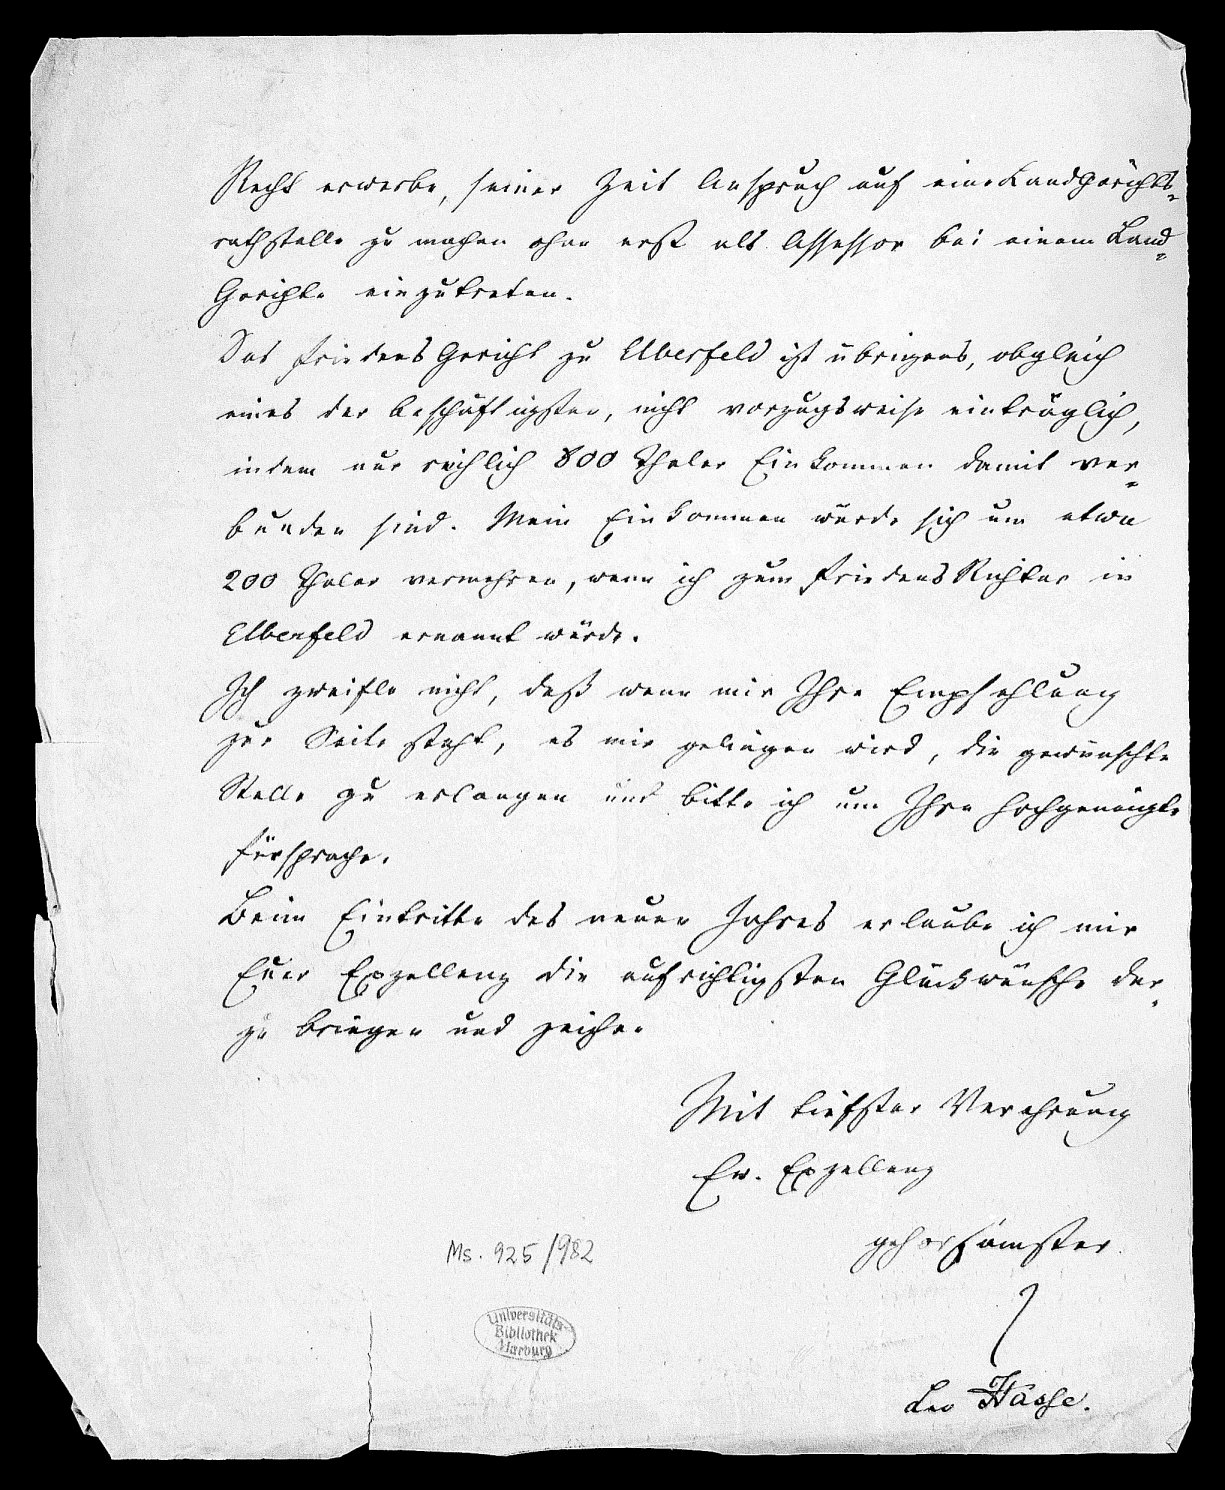 Recht erwerbe, seiner Zeit Anspruch auf eine Landgerichts-
rathstelle zu machen ohne erst als Assessor bei einem Land-
Gerichte einzutreten.
Das Friedens Gericht zu Elberfeld ist übrigens, obgleich
eines der beschäftigsten, nicht vorzugsweise einträglich,
indem nur reichlich 800 Thaler Einkommen damit ver-
bunden sind. Mein Einkommen würde sich um etwa
200 Thaler vermehren, wenn ich zum Friedens Richter in
Elberfeld ernannt würde.
Ich zweifle nicht, daß wenn mir Ihre Empfehlung
zur Seite steht, es mir gelingen wird, die gewünschte
Stelle zu erlangen und bitte ich um Ihre hochgeneigte
Fürsprache.
Beim Eintritte des neuen Jahres erlaube ich mir
Euer Exzellenz die aufrichtigsten Glückwünsche dar-
zu bringen und zeichne
Mit tiefster Verehrung
Ew. Exzellenz
gehorsamster
Leo Hasse.
Ms. 925/982
Universitäts-
Bibliothek
Marburg